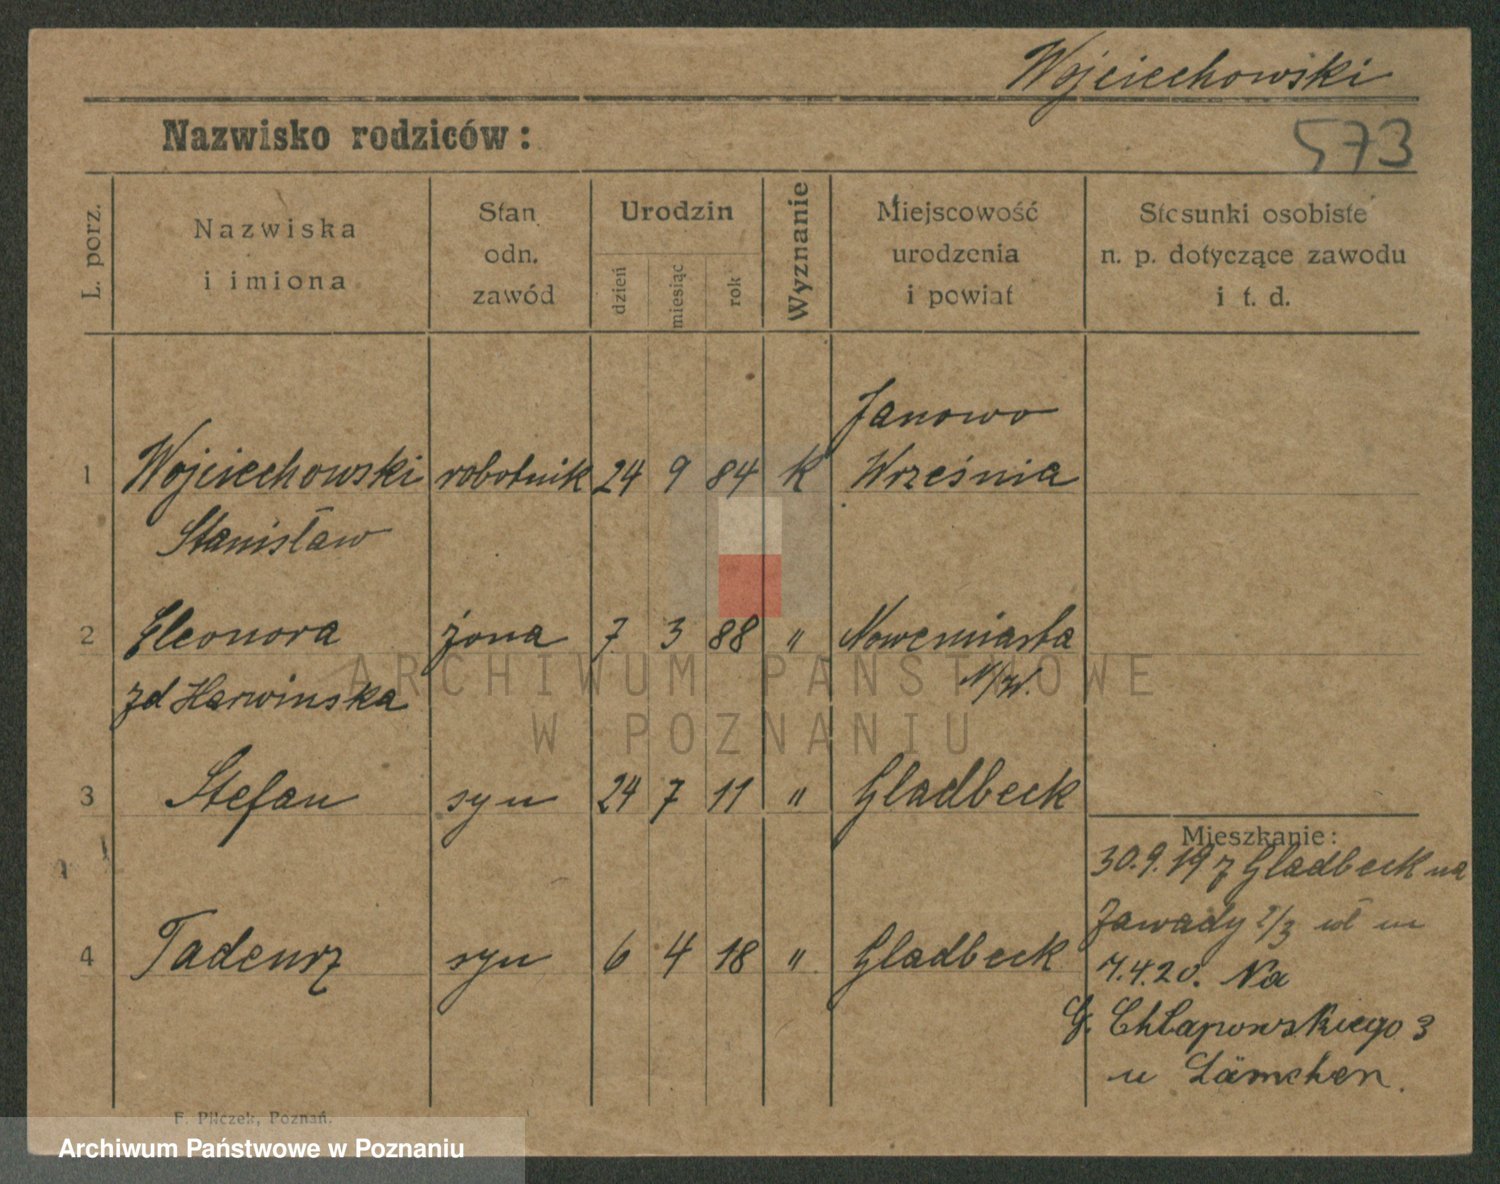 Wojciechowski
573
Nazwisko rodziców:
L. porz.
Nazwiska
i imiona
Stan
odn.
zawód
Urodzin
dzień
miesiąc
rok
Wyznanie
Miejscowość
urodzenia
i powiat
Stosunki osobiste
n. p. dotyczące zawodu
i t. d.
Janowo
1 Wojciechowski robotnik 24 9 84 k Września
Stanisław
2 Eleonora żona 7 3 88 " Nowemiasta
zd Harwinska N/W.
ARCHIWUM PAŃSTWOWE
W POZNANIU
3 Stefan syn 24 7 11 " Gladbeck
Mieszkanie:
30.9.19 z Gladbeck na
Zawady 2/3 wł
4 Tadeusz syn 6 4 18 " Gladbeck
7.4.20. Na
G. Chłapowskiego 3
u Lämchen.
F. Pilczek, Poznań.
Archiwum Państwowe w Poznaniu